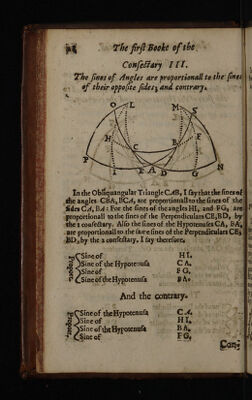 The first Booke of the
Consectary III.
The sines of Angles are proportionall to the sines
of their opposite sides; and contrary.
O L M S
H B F
C E
P I F A D G N
In the Obliquangular Triangle CAB, I say that the sines of
the angles CBA, BCA, are proportionall to the sines of the
sides CA, BA: For the sines of the angles HI, and FG, are
proportionall to the sines of the Perpendiculars CE, BD, by
the 1 consectary. Also the sines of the Hypotenusas CA, BA,
are proportionall to the same sines of the Perpendiculars CE,
BD, by the 2 consectary. I say therefore,
Sine of HI.
Sine of the Hypotenusa CA.
Sine of FG.
Sine of the Hypotenusa BA.
And the contrary.
Sine of the Hypotenusa CA.
Sine of HI.
Sine of the Hypotenusa BA.
Sine of FG.
Con-